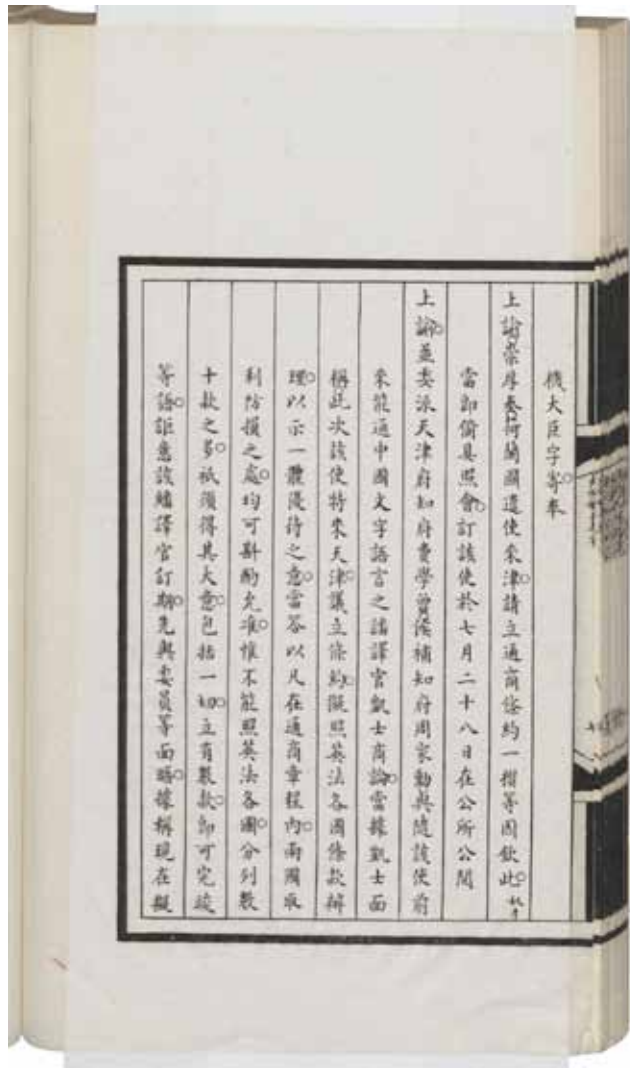 機大臣字寄奉
上諭崇厚奏荷蘭國遣使來津請立通商條約一摺等因欽此
當即備具照會訂該使於七月二十八日在公所公閱
上諭並委派天津府知府費學曾候補知府周家勳與隨該使前
來能通中國文字語言之繙譯官凱士商論當據凱士面
稱此次該使特來天津議立條約擬照英法各國條款辦
理以示一體優待之意當答以凡在通商章程內兩國取
利防損之處均可斟酌允准惟不能照英法各國分列數
十款之多祇須得其大意包括一切立有數款即可完竣
等語詎意該繙譯官訂期先與委員等面晤據稱現在擬